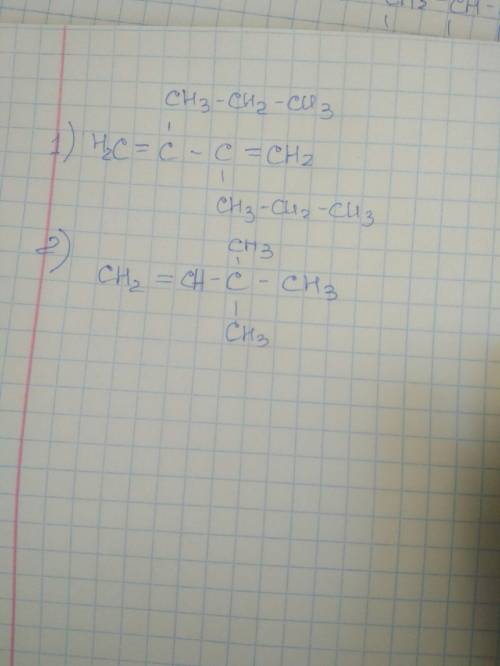 CH3-CH-
CH3-CH2-CH3
1) H2C=C-C=CH2
CH3-CH2-CH3
2) CH3
CH2=CH-C-CH3
CH3